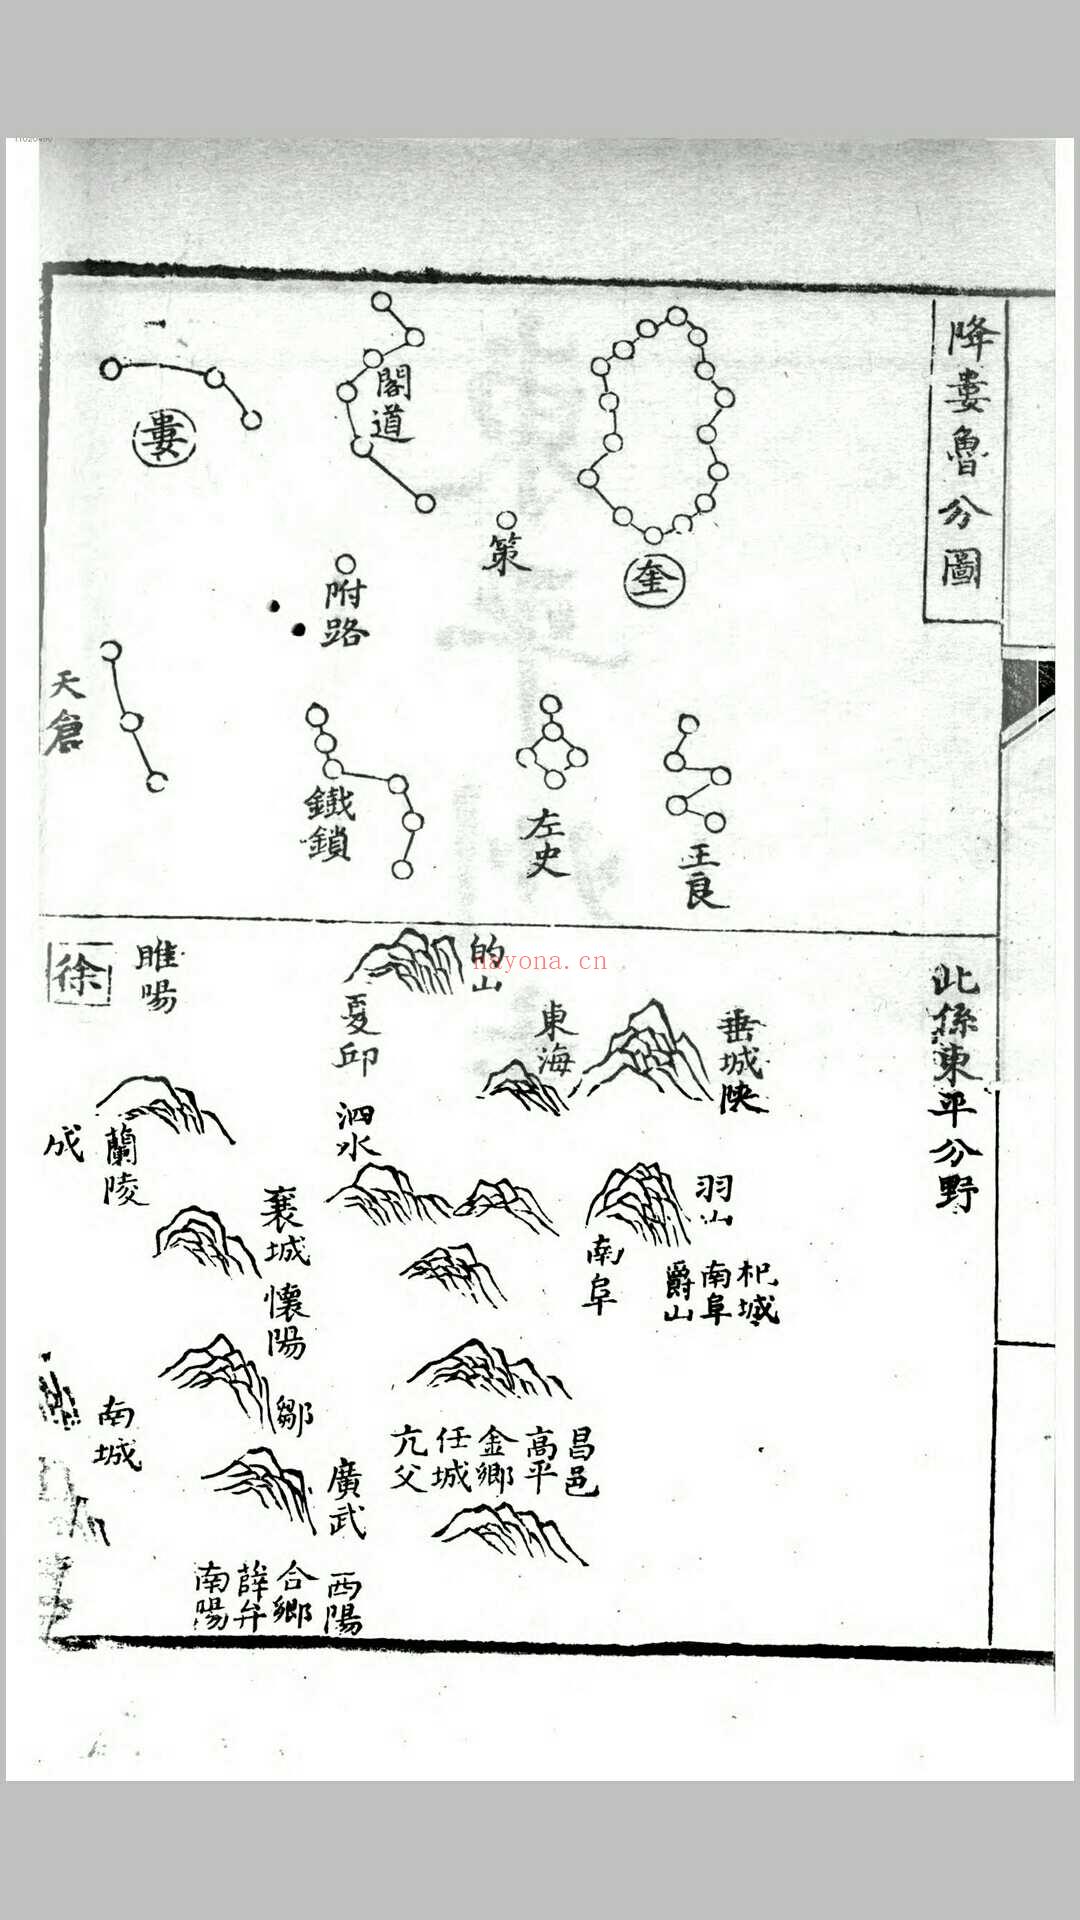 降婁魯分圖
奎
策
閣道
附路
婁
王良
左史
鐵鎖
天倉
此係東平分野
垂城陝
羽山
杞城
南阜
爵山
南阜
東海
的山
夏邱
泗水
昌邑
高平
金鄉
任城
亢父
睢陽
徐
蘭陵
成
襄城
懷陽
鄒
廣武
西陽
合鄉
薛弁
南陽
南城
nayona.cn